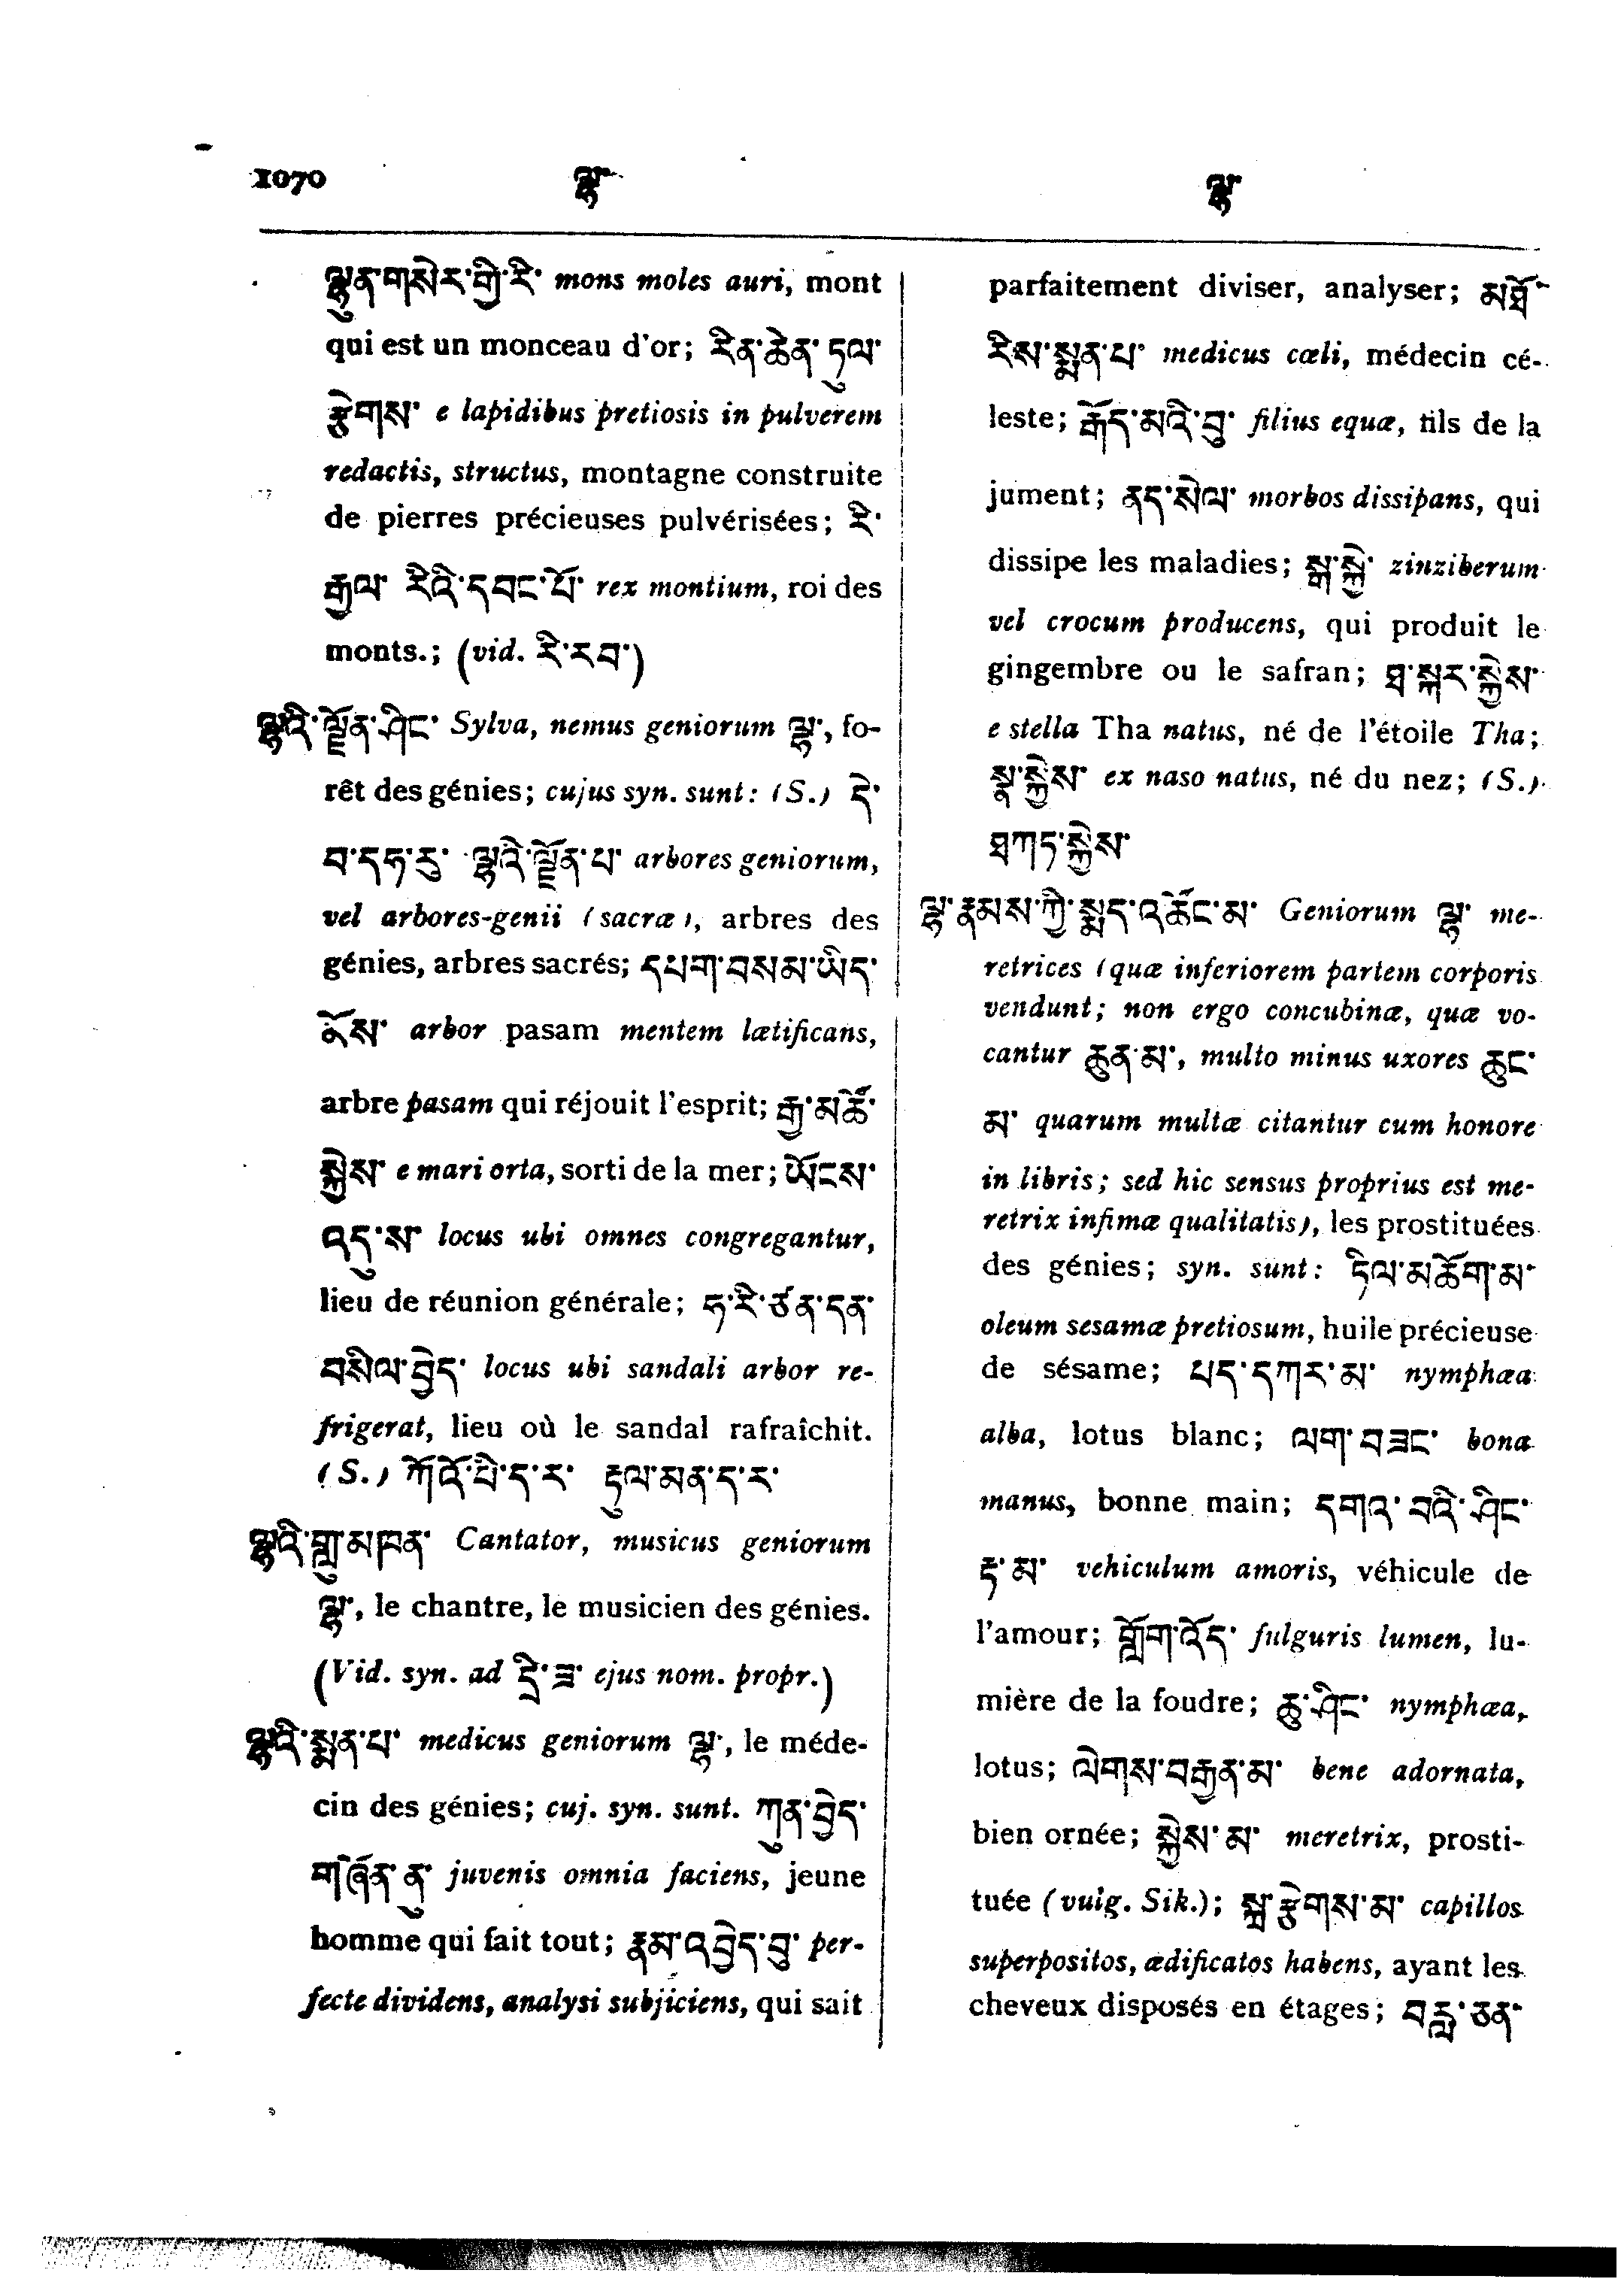 1070 ལྷ་ ལྷ་
ལྷུན་གསེར་གྱི་རི་ mons moles auri, mont
qui est un monceau d'or; རིན་ཆེན་ དུལ་
རྩེགས་ e lapidibus pretiosis in pulverem
redactis, structus, montagne construite
de pierres précieuses pulvérisées; རི་
རྒྱལ་ རིའི་དབང་པོ་ rex montium, roi des
monts.; (vid. རི་རབ་)
ལྷའི་ལྗོན་ཤིང་ Sylva, nemus geniorum ལྷ་, fo-
rêt des génies; cujus syn. sunt: (S.) དེ་
བ་དཧ་རུ་ ལྷའི་ལྗོན་པ་ arbores geniorum,
vel arbores-genii (sacræ), arbres des
génies, arbres sacrés; དཔག་བསམ་ཡིད་
ནོས་ arbor pasam mentem lætificans,
arbre pasam qui réjouit l'esprit; རྒྱ་མཚོ་
སྐྱེས་ e mari orta, sorti de la mer; ཡོངས་
འདུ་ས་ locus ubi omnes congregantur,
lieu de réunion générale; ཧ་རི་ཙན་དན་
བསིལ་བྱེད་ locus ubi sandali arbor re-
frigerat, lieu où le sandal rafraîchit.
(S.) ཀོའོ་པི་ད་ར་ རྡུལ་མན་ད་ར་
ལྷའི་གླུ་མཁན་ Cantator, musicus geniorum
ལྷ་, le chantre, le musicien des génies.
(Vid. syn. ad དྲི་ཟ་ ejus nom. propr.)
ལྷའི་སྨན་པ་ medicus geniorum ལྷ་, le méde-
cin des génies; cuj. syn. sunt. ཀུན་བྱེད་
གཞོན་ནུ་ juvenis omnia faciens, jeune
homme qui fait tout; རྣམ་འབྱེད་བུ་ per-
fecte dividens, analysi subjiciens, qui sait
parfaitement diviser, analyser; མཐོ་
རིས་སྨན་པ་ medicus cœli, médecin cé-
leste; རྒོད་མའི་བུ་ filius equæ, fils de la
jument; ནད་སེལ་ morbos dissipans, qui
dissipe les maladies; སྒ་སྐྱེ་ zinziberum
vel crocum producens, qui produit le
gingembre ou le safran; ཐ་སྐར་སྐྱེས་
e stella Tha natus, né de l'étoile Tha;
སྣ་སྐྱེས་ ex naso natus, né du nez; (S.)
ཐཀད་སྐྱེས་
ལྷ་རྣམས་ཀྱི་སྨད་འཚོང་མ་ Geniorum ལྷ་ me-
retrices (quæ inferiorem partem corporis
vendunt; non ergo concubinæ, quæ vo-
cantur ཆུན་མ་, multo minus uxores ཆུང་
མ་ quarum multæ citantur cum honore
in libris; sed hic sensus proprius est me-
retrix infimæ qualitatis), les prostituées
des génies; syn. sunt: ཏིལ་མཆོག་མ་
oleum sesamæ pretiosum, huile précieuse
de sésame; པད་དཀར་མ་ nymphæa
alba, lotus blanc; ལག་བཟང་ bona
manus, bonne main; དགའ་བའི་ཤིང་
རྟ་མ་ vehiculum amoris, véhicule de
l'amour; གློག་འོད་ fulguris lumen, lu-
mière de la foudre; ཆུ་ཤིང་ nymphæa,
lotus; ལེགས་བརྒྱན་མ་ bene adornata,
bien ornée; སྐྱེས་མ་ meretrix, prosti-
tuée (vulg. Sik.); སྐྲ་རྩེགས་མ་ capillos
superpositos, ædificatos habens, ayant les
cheveux disposés en étages; བརླ་ཅན་